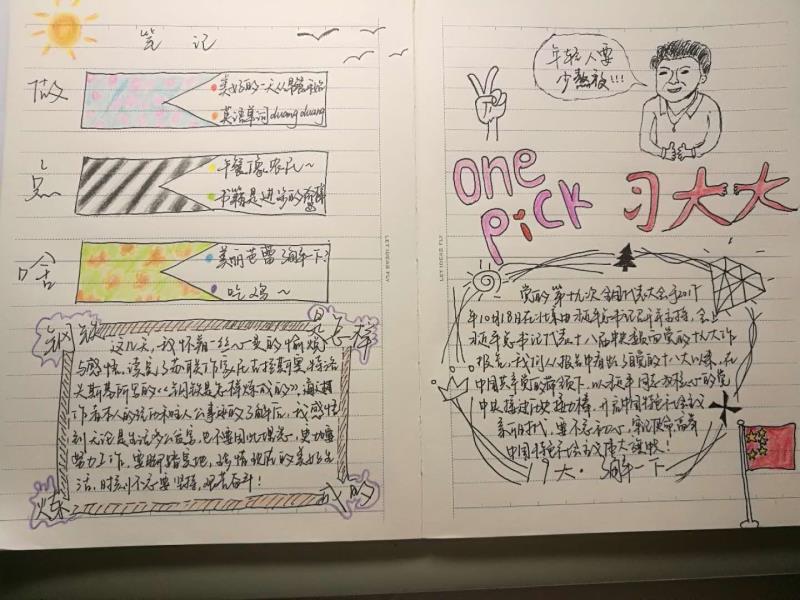 笔记
做
点
啥
美好的一天从早餐开始
英语单词duang duang
午餐像农民~
书籍是进步的阶梯
美丽芭蕾了解一下?
吃鸡~
钢铁
是怎样
炼
成的
这几天,我怀着一丝
的愉悦
与感悟,读完了苏联作家尼古拉·奥斯特洛夫
斯基所写的《钢铁是怎样炼成的》,
努力工作,要脚踏实地,珍惜现在的美好生
活,时刻不忘要坚持,艰苦奋斗!
LET IDEAS FLY
年轻人要
少熬夜!!!
one
pick
习大大
LET IDEAS FLY
党的第十九次全国代表大会于2017
年10月18日在北京由习近平总书记召开并主持,会上
习近平总书记代表十八届中央委员四党的十九大作
报告,我们从报告中看出了自党的十八大以来,在
中国共产党的带领下,以习近平同志为核心的党
中央接过历史接力棒,开启中国特色社会主义
新时代,要不忘初心,牢记使命,高举
中国特色社会主义伟大旗帜!
19大·了解一下